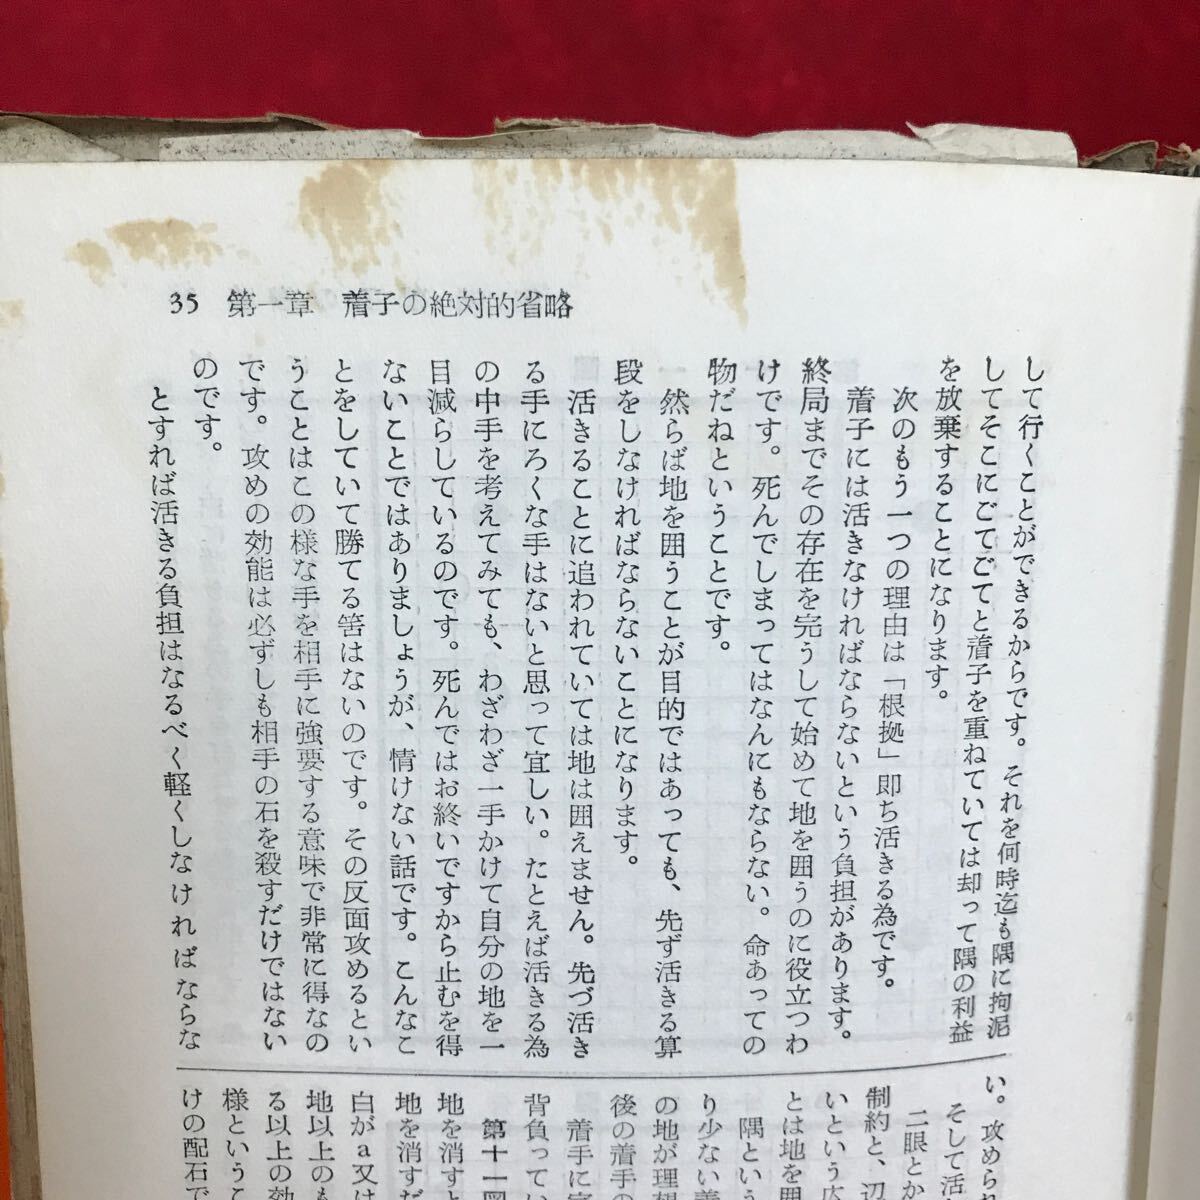 35 第一章 着子の絶対的省略
して行くことができるからです。それを何時迄も隅に拘泥
してそこにごてごてと着子を重ねていては却って隅の利益
を放棄することになります。
次のもう一つの理由は「根拠」即ち活きる為です。
着子には活きなければならないという負担があります。
終局までその存在を完うして始めて地を囲うのに役立つわ
けです。死んでしまってはなんにもならない。命あっての
物だねということです。
然らば地を囲うことが目的ではあっても、先ず活きる算
段をしなければならないことになります。
活きることに追われていては地は囲えません。先づ活き
る手にろくな手はないと思って宜しい。たとえば活きる為
の中手を考えてみても、わざわざ一手かけて自分の地を一
目減らしているのです。死んではお終いですから止むを得
ないことではありましょうが、情けない話です。こんなこ
とをしていて勝てる筈はないのです。その反面攻めるとい
うことはこの様な手を相手に強要する意味で非常に得なの
です。攻めの効能は必ずしも相手の石を殺すだけではない
のです。
とすれば活きる負担はなるべく軽くしなければならな
い。攻められ
そして活
二眼とか
制約と、辺
いという広
とは地を囲
隅という
り少ない着
の地が理想
後の着手の
着手に完
背負ってい
第十一図
地を消すと
地を消すだ
白がa又は
地以上のも
る以上の効
様というこ
けの配石で